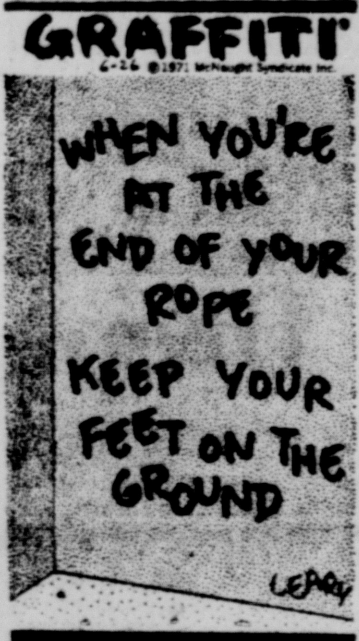 GRAFFITI
6-26 ©1971 McNaught Syndicate Inc.
WHEN YOU'RE
AT THE
END OF YOUR
ROPE
KEEP YOUR
FEET ON THE
GROUND
LEARY